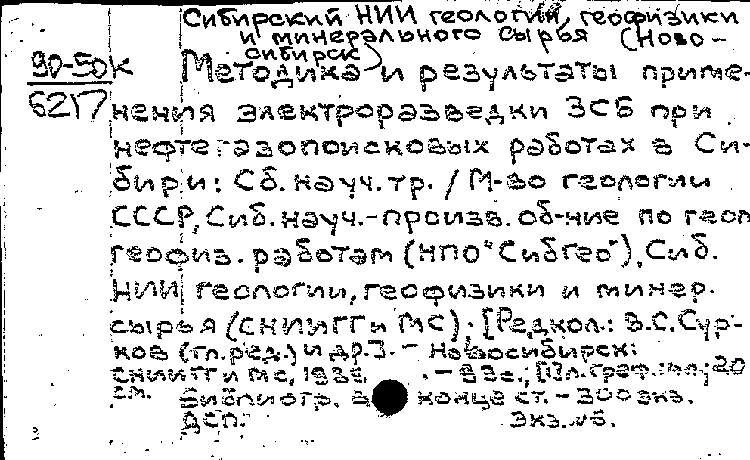 Сибирский НИИ геологии, геофизики
и минерального сырья (Ново-
сибирск)
90-50к
6217
Методика и результаты приме-
нения электроразведки ЗСБ при
нефтегазопоисковых работах в Си-
бири: Сб. науч. тр. / М-во геологии
СССР, Сиб. науч.-произв. об-ние по геол.
геофиз. работам (НПО "Сибгео"), Сиб.
НИИ геологии, геофизики и минер.
сырья (СНИИГГиМС). [Редкол.: В.С. Сур-
ков (гл. ред.) и др.]. - Новосибирск:
СНИИГГиМС, - 93 с.; 20
см.
Библиогр. в конце ст. - 300 экз.
ДСП. Экз. №